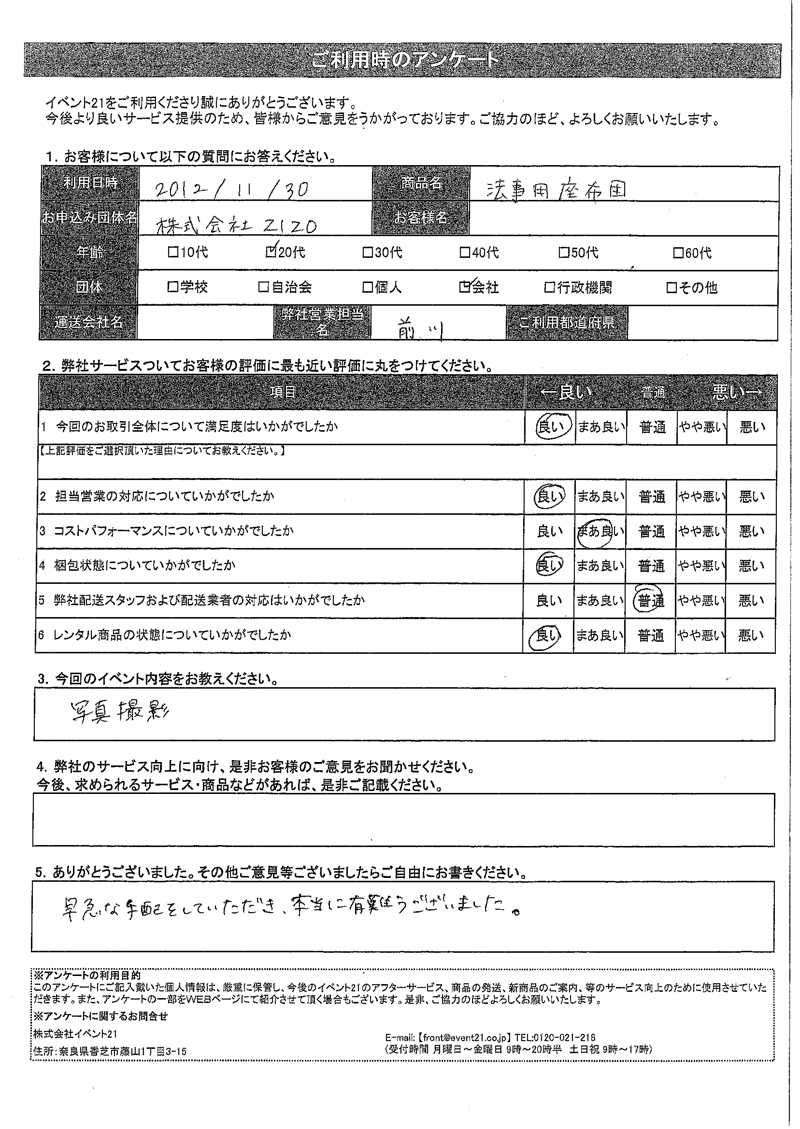 ご利用時のアンケート
イベント21をご利用くださり誠にありがとうございます。
今後より良いサービス提供のため、皆様からご意見をうかがっております。ご協力のほど、よろしくお願いいたします。
1. お客様について以下の質問にお答えください。
利用日時 2012/11/30 商品名 法事用座布団
お申込み団体名 株式会社ZIZO お客様名
年齢 □10代 ☑20代 □30代 □40代 □50代 □60代
団体 □学校 □自治会 □個人 ☑会社 □行政機関 □その他
運送会社名 弊社営業担当名 前川 ご利用都道府県
2. 弊社サービスついてお客様の評価に最も近い評価に丸をつけてください。
項目 ←良い 普通 悪い→
1 今回のお取引全体について満足度はいかがでしたか 良い まあ良い 普通 やや悪い 悪い
【上記評価をご選択頂いた理由についてお教えください。】
2 担当営業の対応についていかがでしたか 良い まあ良い 普通 やや悪い 悪い
3 コストパフォーマンスについていかがでしたか 良い まあ良い 普通 やや悪い 悪い
4 梱包状態についていかがでしたか 良い まあ良い 普通 やや悪い 悪い
5 弊社配送スタッフおよび配送業者の対応はいかがでしたか 良い まあ良い 普通 やや悪い 悪い
6 レンタル商品の状態についていかがでしたか 良い まあ良い 普通 やや悪い 悪い
3. 今回のイベント内容をお教えください。
写真撮影
4. 弊社のサービス向上に向け、是非お客様のご意見をお聞かせください。
今後、求められるサービス・商品などがあれば、是非ご記載ください。
5. ありがとうございました。その他ご意見等ございましたらご自由にお書きください。
早急な手配をしていただき、本当に有難うございました。
※アンケートの利用目的
このアンケートにご記入戴いた個人情報は、厳重に保管し、今後のイベント21のアフターサービス、商品の発送、新商品のご案内、等のサービス向上のために使用させていた
だきます。また、アンケートの一部をWEBページにて紹介させて頂く場合もございます。是非、ご協力のほどよろしくお願いいたします。
※アンケートに関するお問合せ
株式会社イベント21 E-mail:【front@event21.co.jp】 TEL:0120-021-216
住所:奈良県香芝市藤山1丁目3-15 (受付時間 月曜日～金曜日 9時～20時半 土日祝 9時～17時)